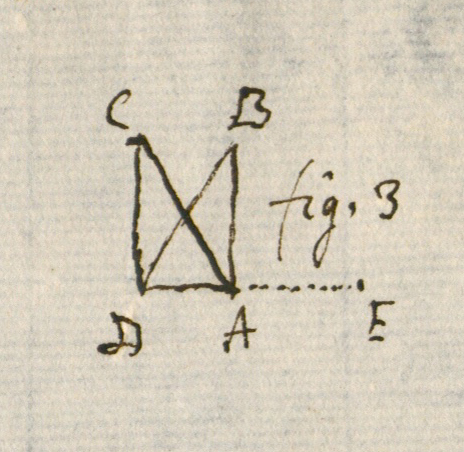 C B
fig. 3
D A E